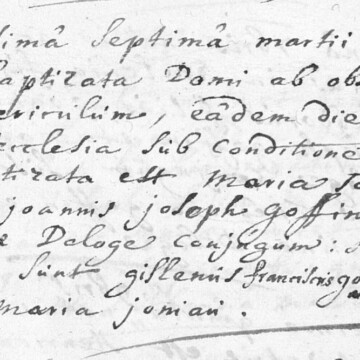 simâ Septimâ martii
baptizata Domi ab ob
periculum, eâdem die
Ecclesia sub conditione
tizata est maria
joannis joseph goffin
Deloge conjugum:
sunt gislenus franciscus go
maria joniau.